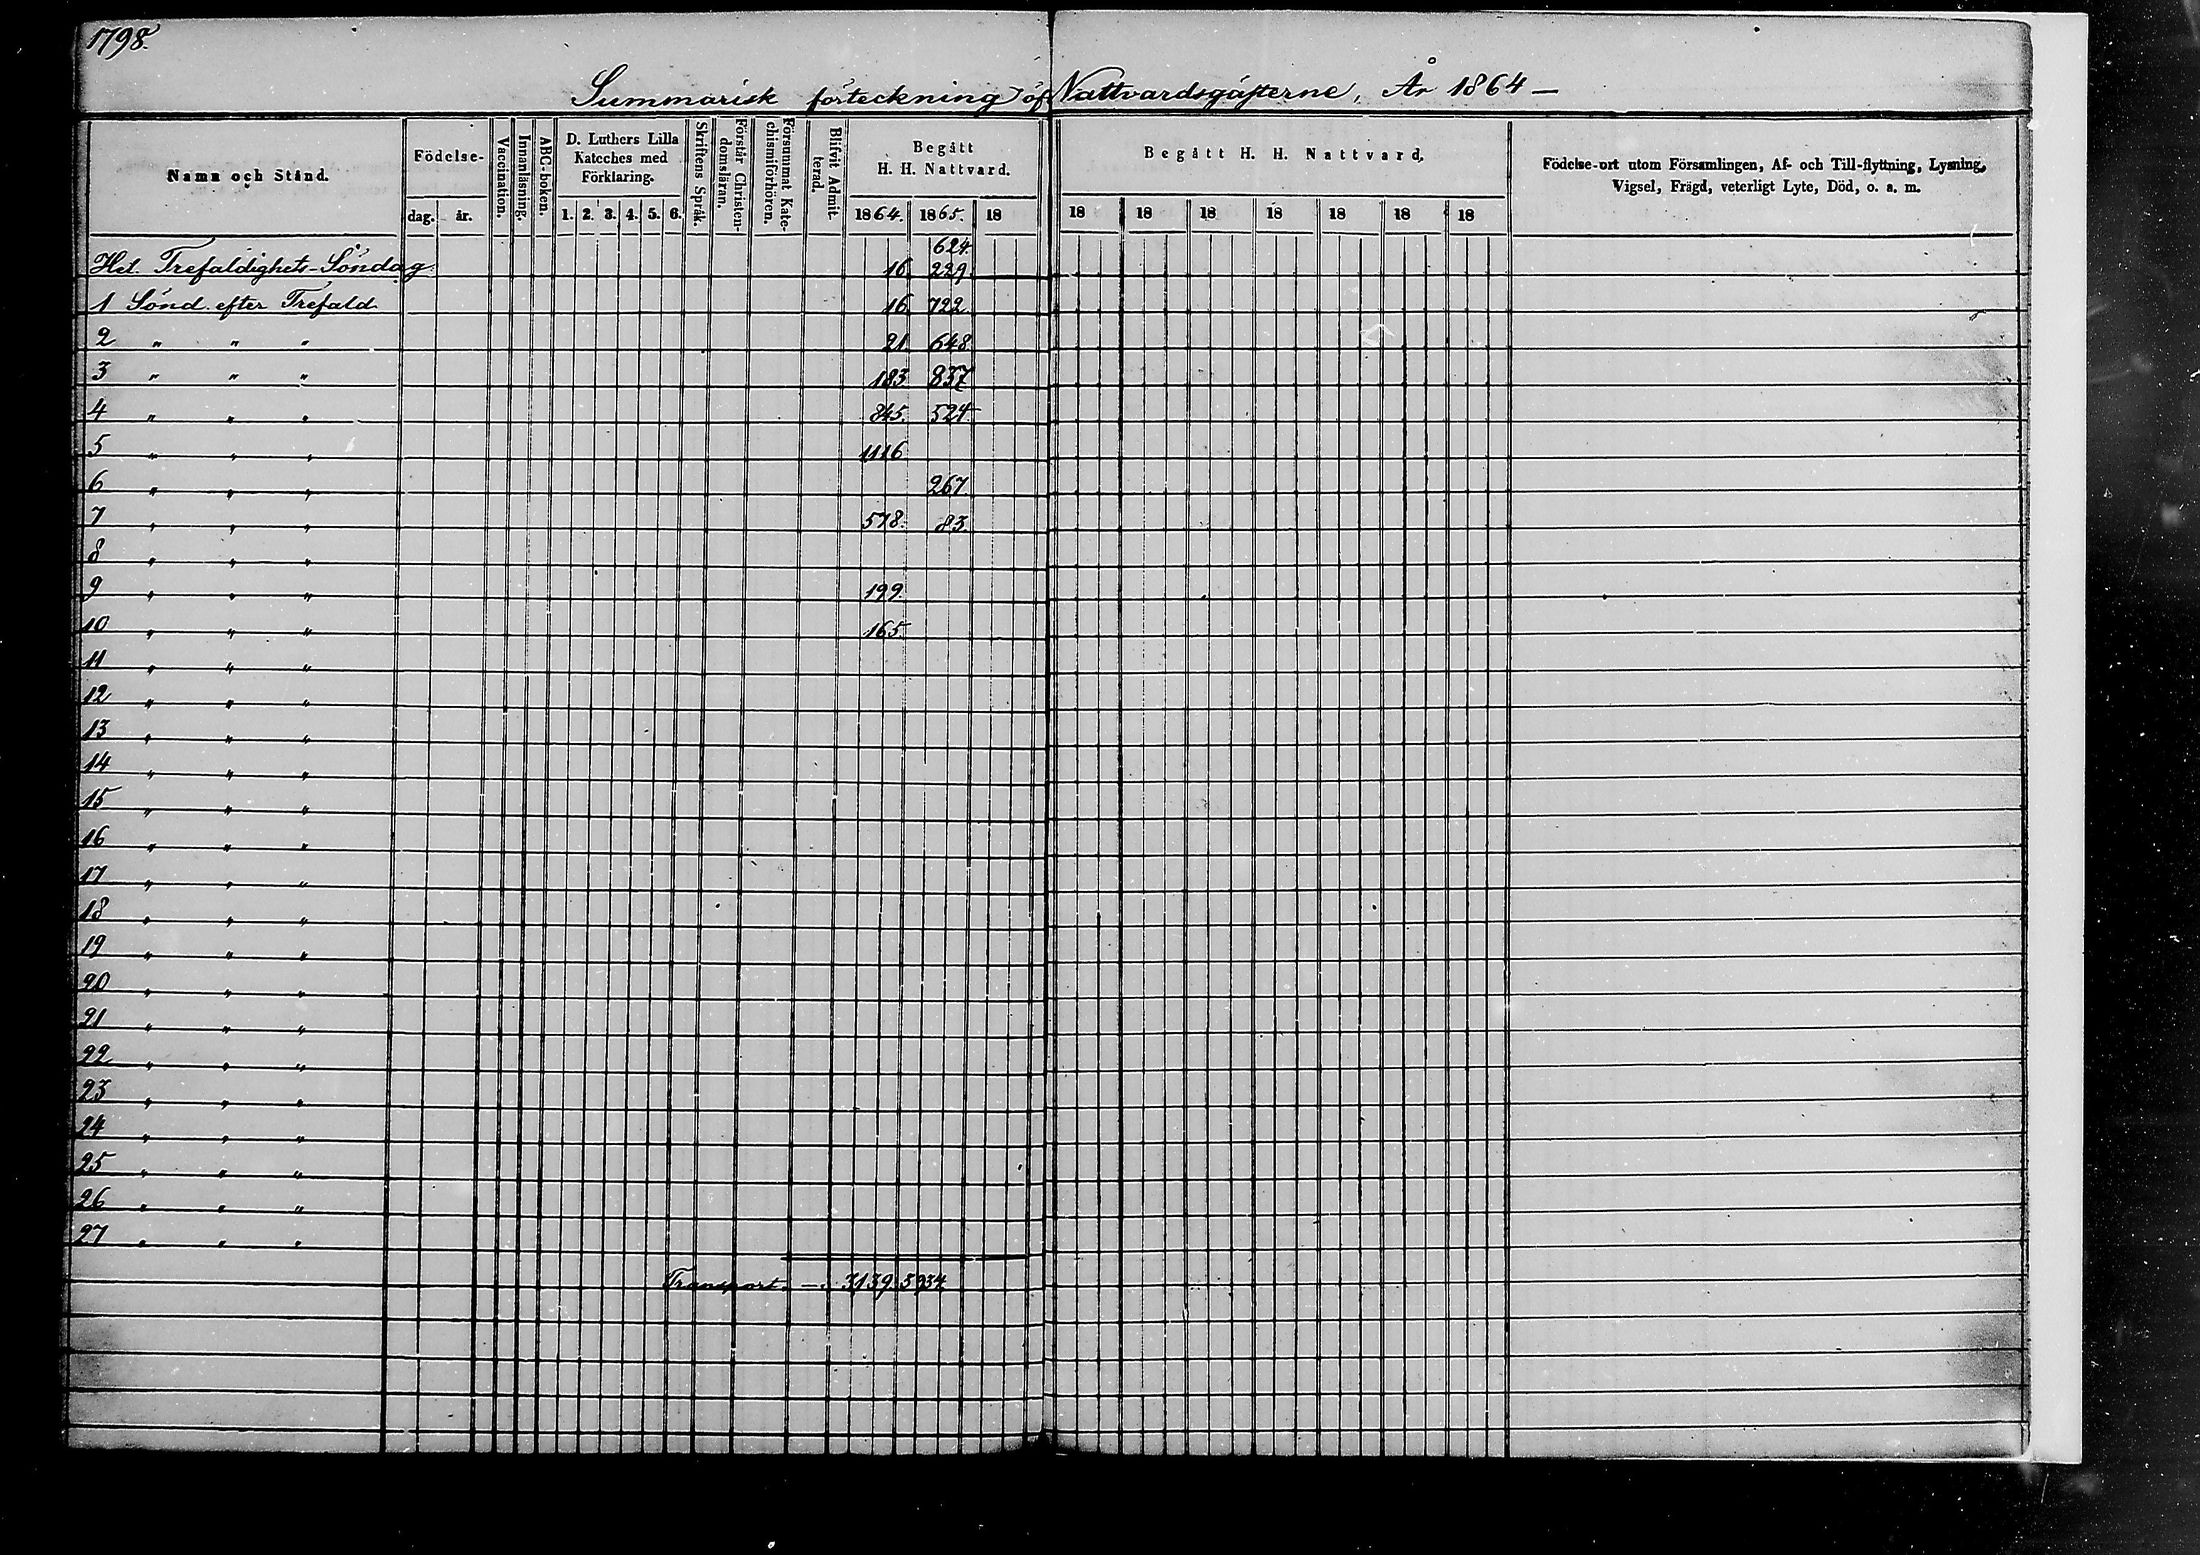 1798.
Summarisk förteckning öf. Nattvardsgästerne, År 1864 —
Namn och Stånd.
Födelse-
dag. år.
Vaccination.
Innanläsning.
ABC-boken.
D. Luthers Lilla
Kateches med
Förklaring.
1. 2. 3. 4. 5. 6.
Skriftens Språk.
Förstår Christen-
domsläran.
Försummat Kate-
chismiförhören.
Blifvit Admit-
terad.
Begått
H. H. Nattvard.
1864. 1865. 18
Begått H. H. Nattvard.
18 18 18 18 18 18 18
Födelse-ort utom Församlingen, Af- och Till-flyttning, Lysning,
Vigsel, Frägd, veterligt Lyte, Död, o. s. m.
624.
Hel. Trefaldighets-Söndag. 16. 229.
1 Sönd. efter Trefald. 16. 722.
2 " " " 21. 648.
3 " " " 183. 837
4 " " " 845. 524.
5 " " " 1116
6 " " " 267
7 " " " 578. 83.
8 " " "
9 " " " 199.
10 " " " 165.
11 " " "
12 " " "
13 " " "
14 " " "
15 " " "
16 " " "
17 " " "
18 " " "
19 " " "
20 " " "
21 " " "
22 " " "
23 " " "
24 " " "
25 " " "
26 " " "
27 " " "
Transport. — 3139. 3934.